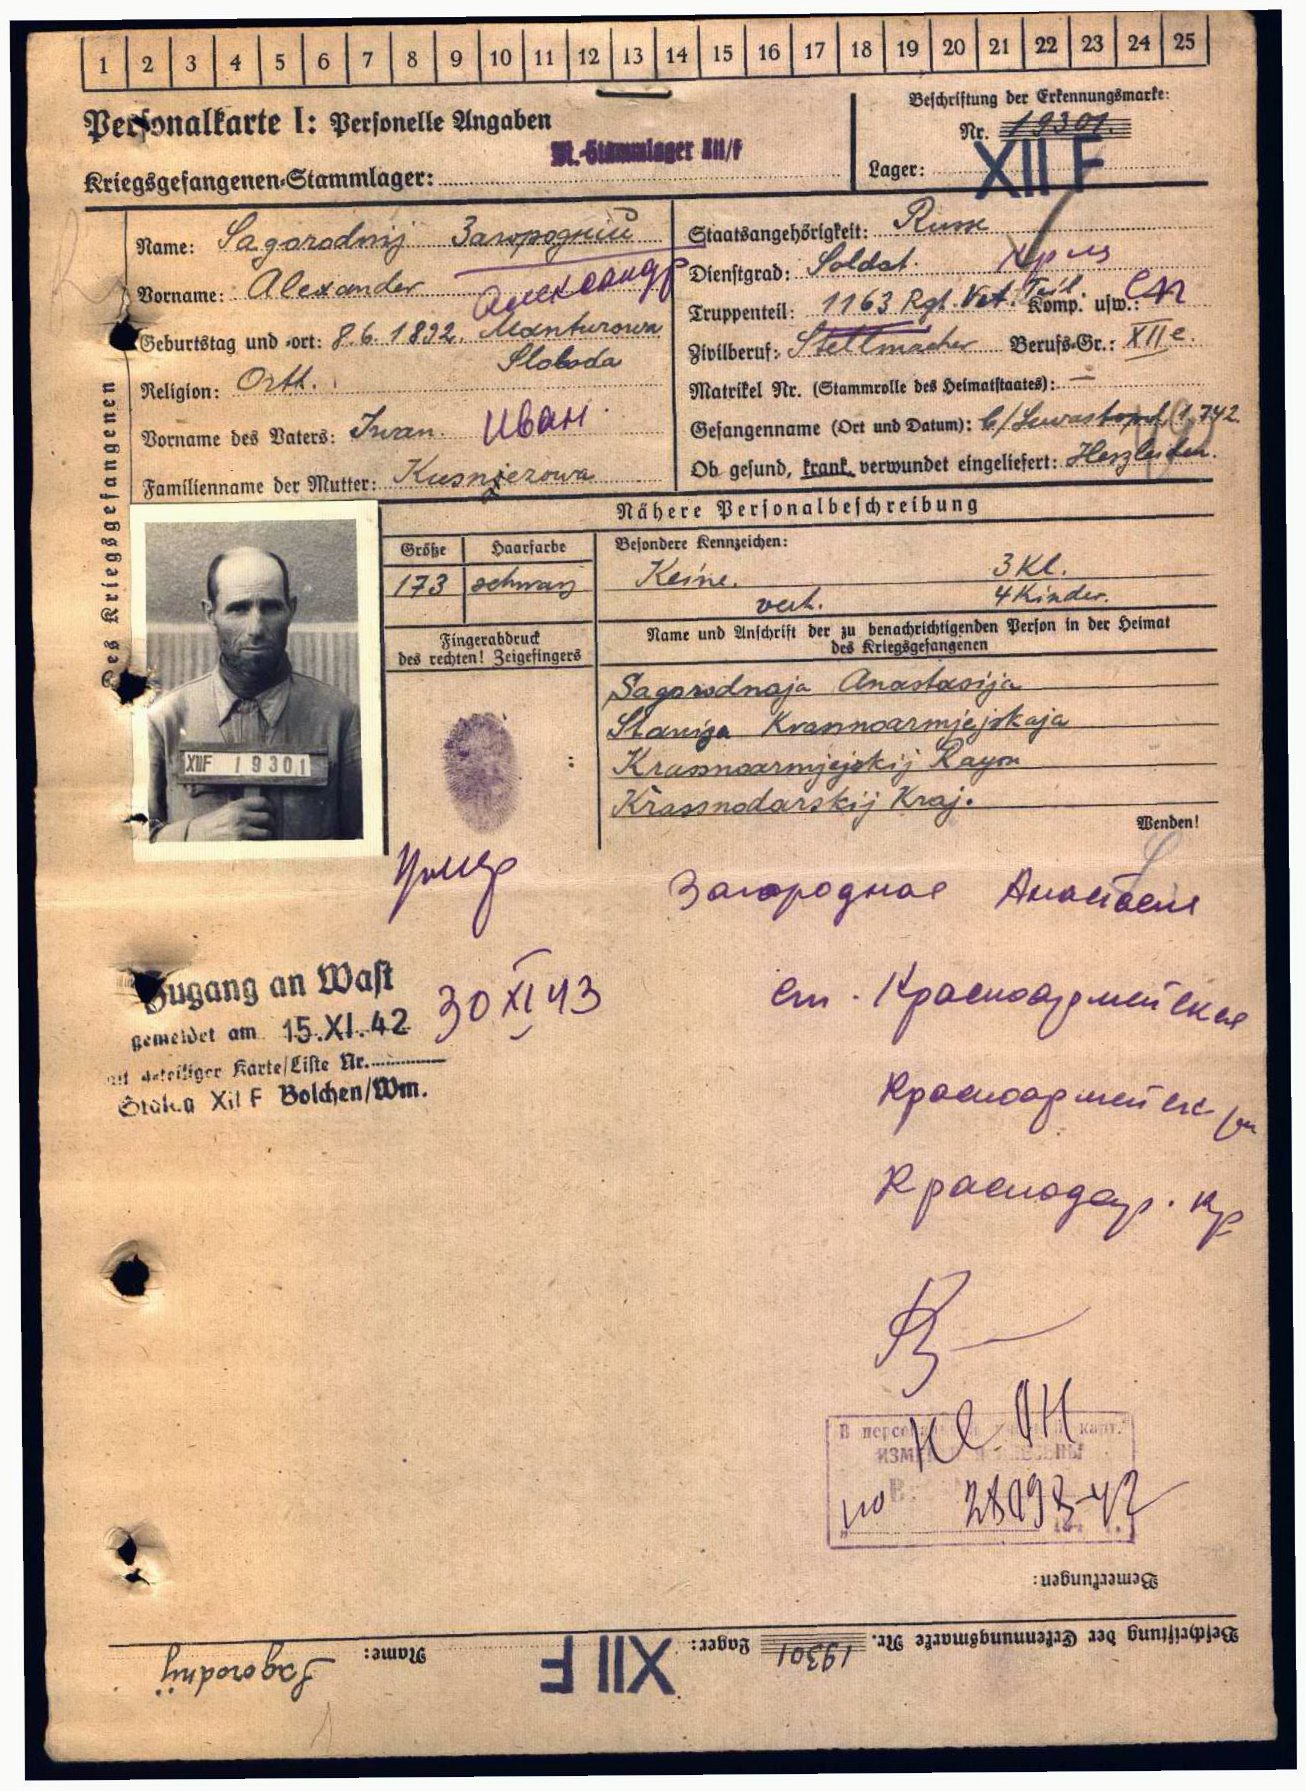 1 2 3 4 5 6 7 8 9 10 11 12 13 14 15 16 17 18 19 20 21 22 23 24 25
Personalkarte I: Personelle Angaben
M.-Stammlager XII/F
Kriegsgefangenen-Stammlager:
Beschriftung der Erkennungsmarke:
Nr. 19301.
Lager: XII F
des Kriegsgefangenen
Name: Sagorodnij Загородний
Vorname: Alexander Александр
Geburtstag und -ort: 8.6.1892. Manturowa
Sloboda
Religion: Orth.
Vorname des Vaters: Iwan. Иван
Familienname der Mutter: Kusnezowa
Staatsangehörigkeit: Russe
Dienstgrad: Soldat.
Truppenteil: 1163 Rgt. Vet. Komp. usw.:
Zivilberuf: Stellmacher Berufs-Gr.: XII e.
Matrikel Nr. (Stammrolle des Heimatstaates): —
Gefangenname (Ort und Datum): b/Sewastopol 1.7.42.
Ob gesund, krank, verwundet eingeliefert: Herzleiden.
Nähere Personalbeschreibung
Größe Haarfarbe Besondere Kennzeichen:
173 schwarz Keine. 3 Kl.
verh. 4 Kinder.
Fingerabdruck
des rechten! Zeigefingers
Name und Anschrift der zu benachrichtigenden Person in der Heimat
des Kriegsgefangenen
Sagorodnaja Anastasija
Staniza Krasnoarmjejskaja
Krasnoarmjejskij Rayon
Krassnodarskij Kraj.
Wenden!
XIIF 19301
умер
Загородная Анастасия
30 XI 43
ст. Красноармейская
Красноармейск рн
Краснодар. кр
Zugang an Wast
gemeldet am 15.XI.42
mit 4-teiliger Karte/Liste Nr.
Stalag XII F Bolchen/Wm.
по
Bemerkungen:
Beschriftung der Erkennungsmarke Nr. 19301 Lager: XII F Name: Sagorodnij